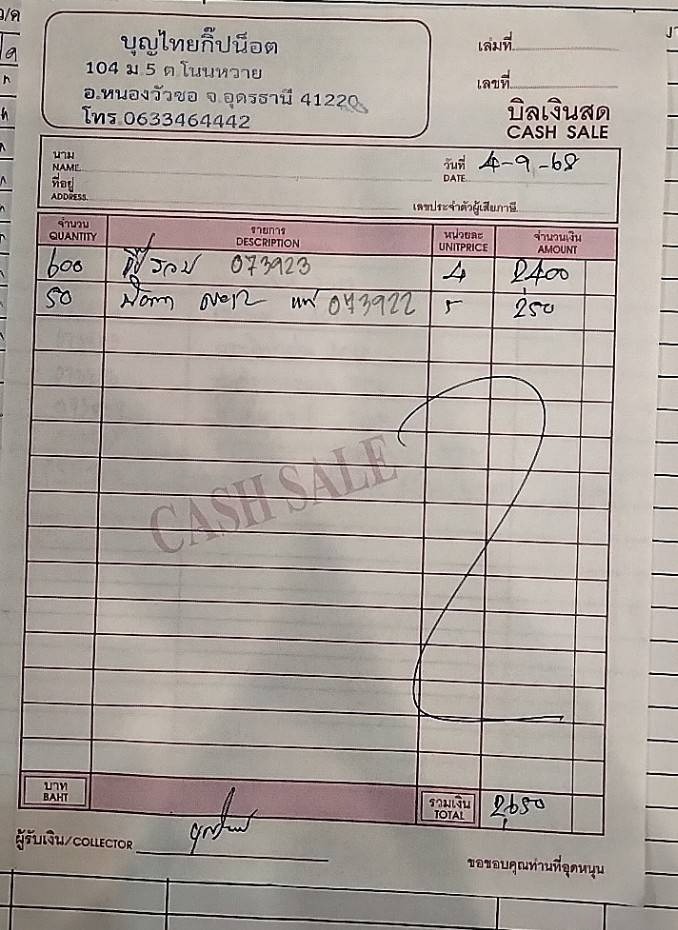 บุญไทยกิ๊ปน็อต
104 ม.5 ต.โนนหวาย
อ.หนองวัวซอ จ.อุดรธานี 41220
โทร.0633464442
เล่มที่
เลขที่
บิลเงินสด
CASH SALE
นาม
NAME
ที่อยู่
ADDRESS
วันที่ 4-9-68
DATE
เลขประจำตัวผู้เสียภาษี
จำนวน รายการ หน่วยละ จำนวนเงิน
QUANTITY DESCRIPTION UNITPRICE AMOUNT
600 073923 4 2,400
50 073922 5 250
CASH SALE
บาท
BAHT
รวมเงิน
TOTAL 2,650
ผู้รับเงิน/COLLECTOR
ขอขอบคุณท่านที่อุดหนุน